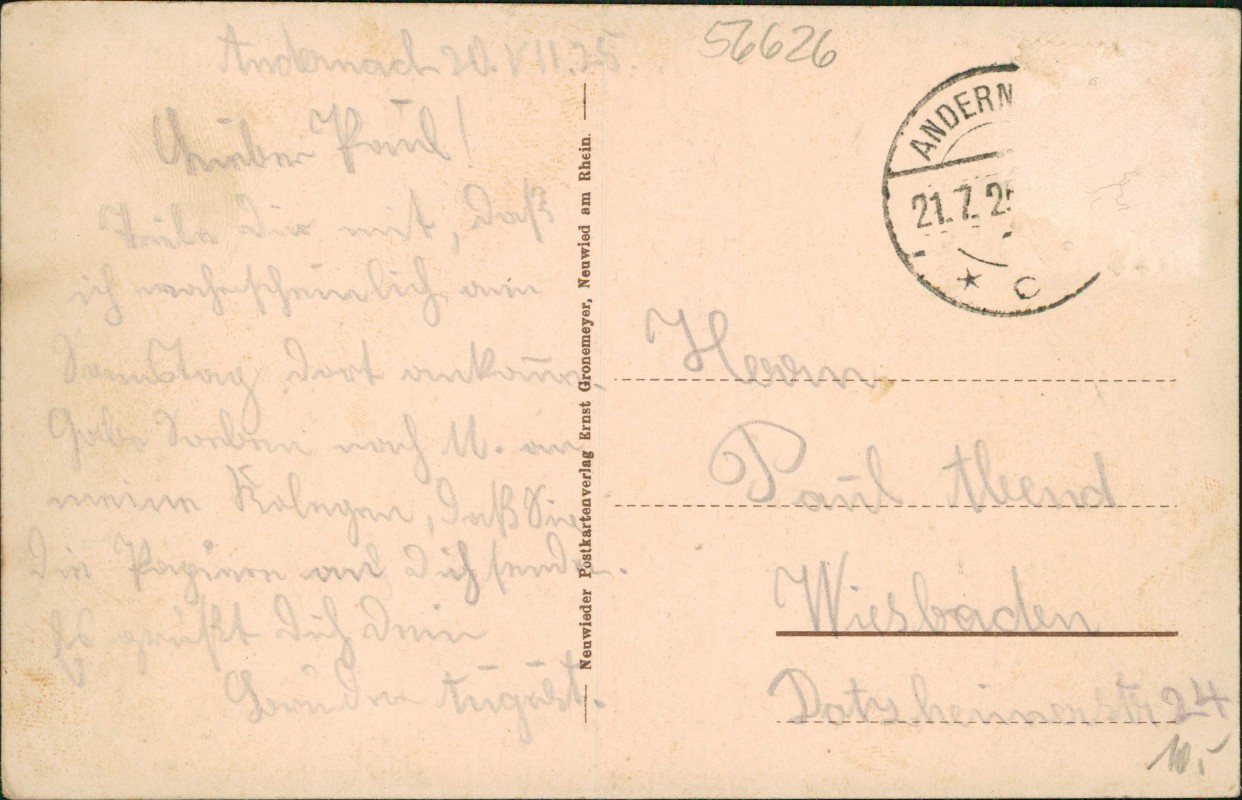 Andernach 20.VII.25.
Lieber Paul!
Teile Dir mit, daß
ich wahrscheinlich am
Samstag dort ankomm.
Habe Soeben nach U. an
meine Kolegen, daß Sie
die Papiere an Dich senden.
Es grüßt Dich Dein
Bruder August.
Neuwieder Postkartenverlag Ernst Gronemeyer, Neuwied am Rhein.
56626
ANDERN
21.7.25
* C
Herrn
Paul Abend
Wiesbaden
Dotzheimerstr 24
10,-